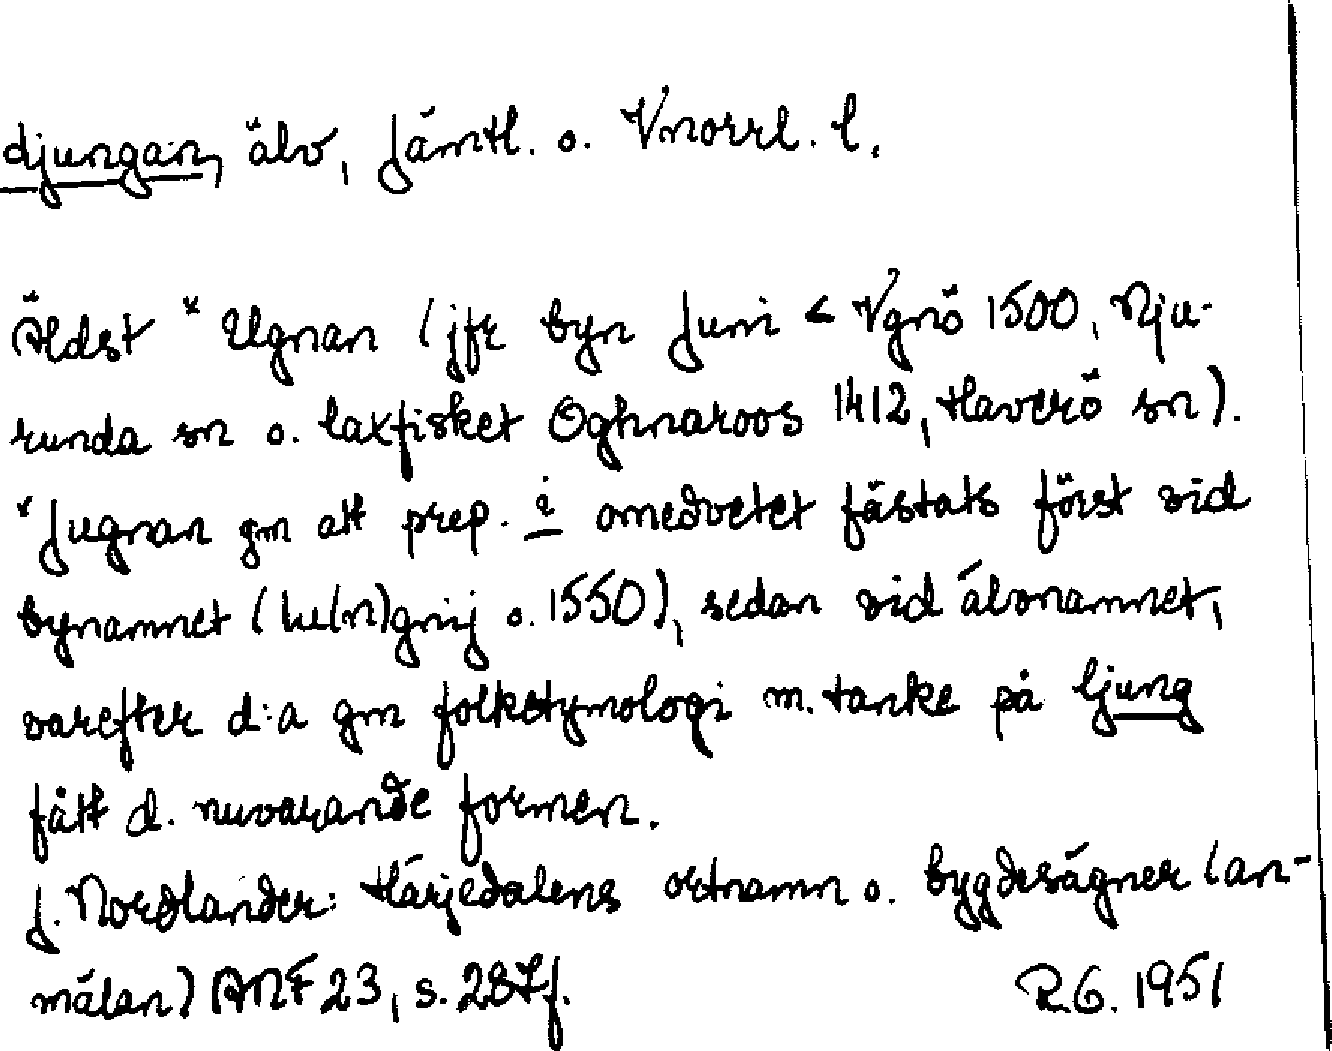 djungan, älv, Jämtl. o. Vnorrl. l.
Äldst *Ugnan (jfr byn Juni < Vgnö 1500, Nju-
runda sn o. laxfisket Oghnaroos 1412, Haverö sn).
*Jugnan gm att prep. i omedvetet fästats först vid
bynamnet (Iu(n)gnij o. 1550), sedan vid älvnamnet,
varefter d:a gm folketymologi m. tanke på ljung
fått d. nuvarande formen.
J. Nordlander: Härjedalens ortnamn o. bygdesägner (an-
mälan) ANF 23, s. 287f. R.G. 1951